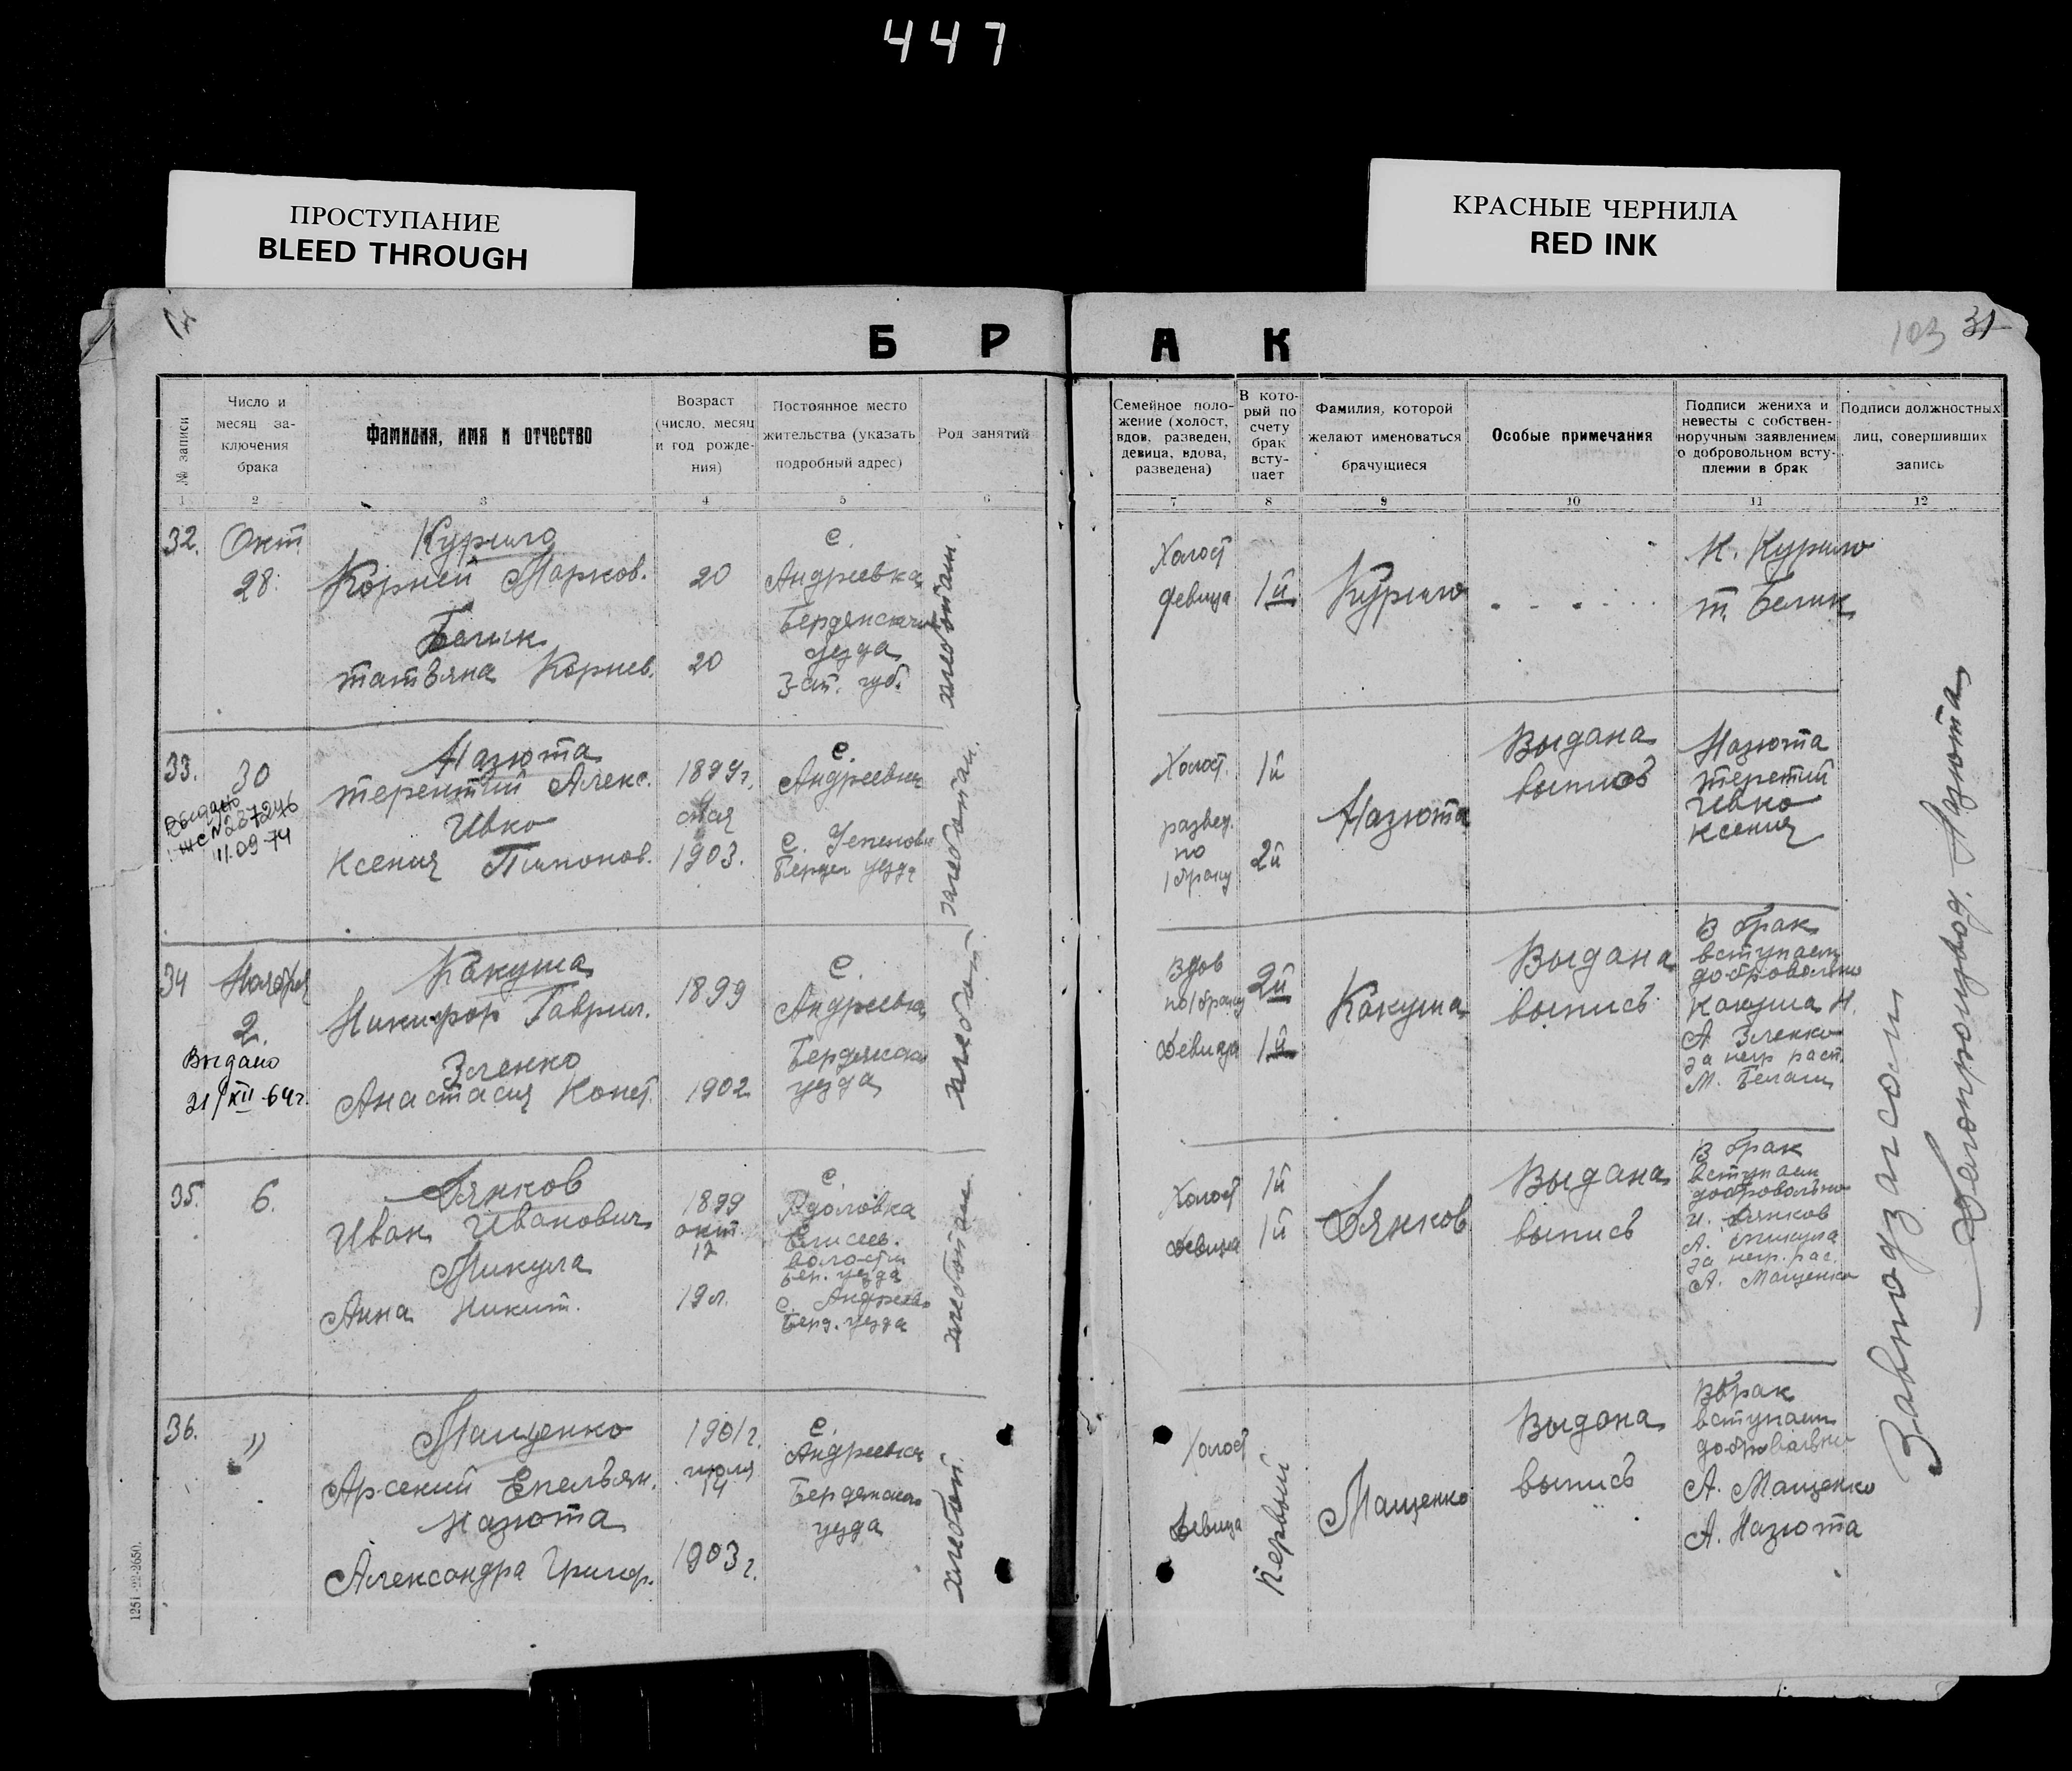 447
ПРОСТУПАНИЕ
BLEED THROUGH
КРАСНЫЕ ЧЕРНИЛА
RED INK
БРАК
103 31
№ записи
Число и
месяц за-
ключения
брака
Фамилия, имя и отчество
Возраст
(число, месяц
и год рожде-
ния)
Постоянное место
жительства (указать
подробный адрес)
Род занятий
Семейное поло-
жение (холост,
вдов, разведен,
девица, вдова,
разведена)
В кото-
рый по
счету
брак
всту-
пает
Фамилия, которой
желают именоваться
брачущиеся
Особые примечания
Подписи жениха и
невесты с собствен-
норучным заявлением
о добровольном всту-
плении в брак
Подписи должностных
лиц, совершивших
запись
1 2 3 4 5 6 7 8 9 10 11 12
32.
Окт
28.
Курило
Корней Марков.
Белик
татьяна Корнев.
20
20
с.
Андреевка
Бердянского
уезда
Зап. губ.
хлебопаш.
Холост
девица
1й
Курило
К. Курило
т. Белик
33.
30
Выдано
№ 287246
11.09-74
Назюта
терентий Алекс.
Ивко
Ксения
1899г.
мая
1903.
с.
Андреевка
с.
Бердян уезда
хлебопаш.
Холост.
развед.
по
1 браку
1й
2й
Назюта
Выдана
выпись
Назюта
теретий
Ивко
Ксения
34
Ноября
2.
Выдано
21/XII-64г.
Кокуша
Никифор Гаврил.
Зленко
Анастасия Конст.
1899
1902
с.
Андреевка
Бердянска
уезда
хлебопаш
Вдов
по 1 браку
Девица
2й
1й
Кокуша
Выдана
выпись
В брак
вступаем
добровольно
Кокуша Н.
А. Зленко
за негр расп.
М. Белаш
35.
6.
Дянков
Иван Иванович
Микула
Анна Никит.
1899
окт.
12
19 л.
с.
Елисеев.
волости
Бер. уезда
с. Андреевка
Берд. уезда
хлебопаш.
Холост
девица
1й
1й
Дянков
Выдана
выпись
В брак
вступаем
добровольно
И. Дянков
А. Микула
за негр. рас.
А. Мащенко
36.
"
Мащенко
Арсений Емельян.
Назюта
Александра Григор.
1901г.
июля
14
1903г.
с.
Андреевка
Бердянского
уезда
хлебопаш.
Холост
Девица
Первый
Мащенко
Выдана
выпись
В брак
вступаем
добровольно
А. Мащенко
А. Назюта
Завподзагсом
Делопроизвод. Назюта
1251-22-2650.